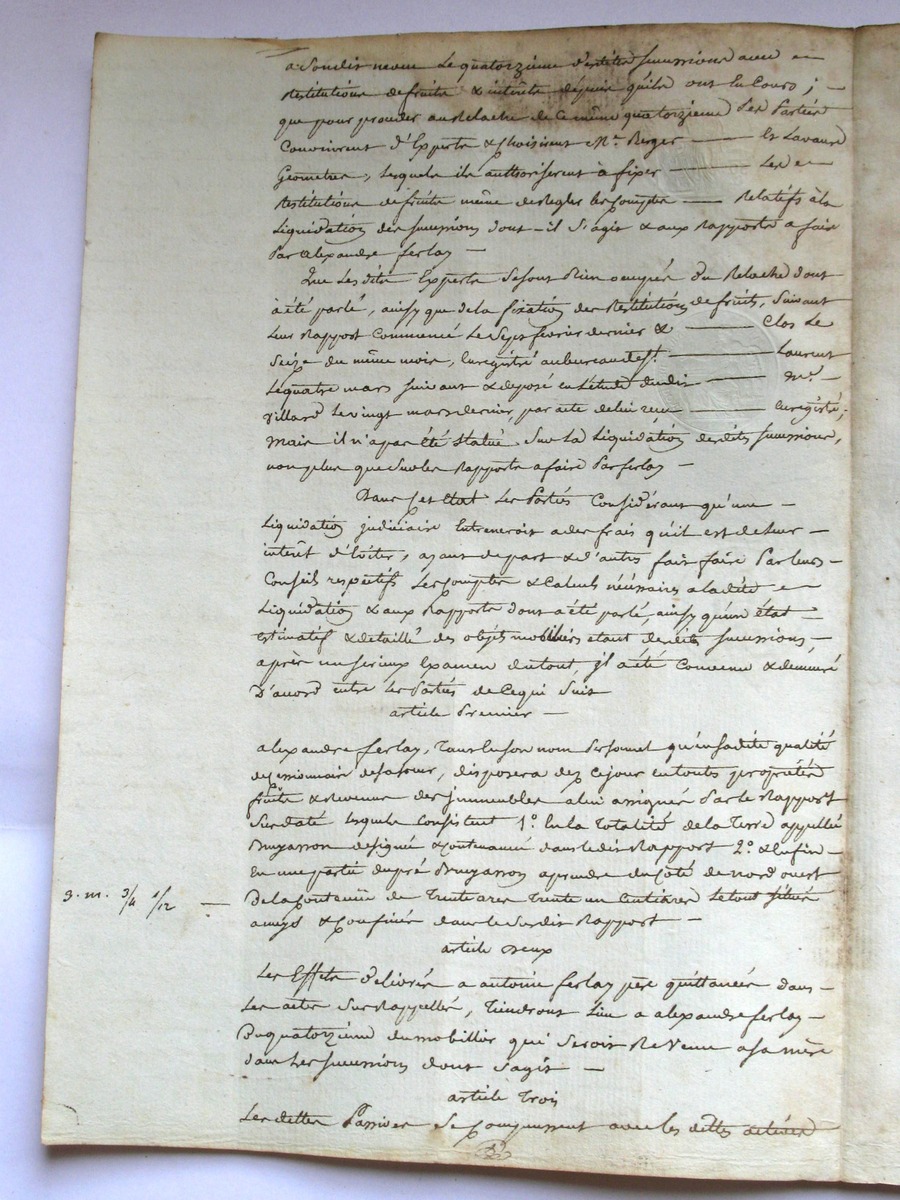 a Sondit neveu le quatorzieme desdites successions avec
restitutions de fruits & intérêts depuis qu'ils ont eu Cours ;
que pour proceder au relache de ce même quatorzieme Les Parties
Convinrent d'Experts & choisirent Mrs. Berger — Et Lavaure
Geometres, lesquels ils authoriserent à fixer — Les
restitutions de fruits même de regler les Comptes — Relatifs à la
Liquidation des successions dont-il S'agit & aux Rapports a faire
Par alexandre ferlay —
Que Lesdits Experts Se sont Bien occupés Du Relache dont
a été parlé, ainsy que de la fixation des Restitutions de fruits, Suivant
Leur Rapport Commencé Le Sept fevrier dernier & — Clos Le
Seize du même mois, Enregistré au bureau de St. — Laurent
Le quatre mars suivant & deposé en l'étude dudit — Me.
Villard Le vingt mars dernier, par acte de lui reçu — Enregistré ;
mais il n'a pas été statué Sur La Liquidation desdites successions,
non plus que Sur les Rapports a faire Par ferlay —
Dans Cet état Les Parties Considérant qu'une —
Liquidation judiciaire Entreneroit a des frais qu'il est de Leur —
interêt d'éviter, ayant de part & d'autres fait faire Par leurs —
Conseils respectifs Les Comptes & Calculs nécessaires a ladite
Liquidation & aux Rapports dont a été parlé, ainsy qu'un état
estimatif & detaillé des objets mobiliers etant desdites successions, —
après un serieux Examen du tout, il a été Convenu & demeuré
D'accord entre Les Parties de Ce qui Suit
article Premier —
alexandre ferlay, Tant En son nom Personnel qu'en sadite qualité
de cessionnaire de sa soeur, disposera dez ce jour en toute propriété
fruits & revenus des jmmeubles a lui assignés Par le Rapport
Susdaté Lesquels Consistent 1°. En la Totalité de la Terre appellée
Bruyasson designée & Contenancée dans ledit Rapport 2°. & Enfin —
En une partie du pré Bruyasson a prendre du Côté de nord ouest
3. m. 3/4 1/12 — De la Contenue de Trente ares Trente un Centiares Le tout situé
& Confiné dans le Susdit Rapport —
article Deux
Les Effets Délivrés a antoine ferlay père quittancés dans —
Les actes Sus Rappellés, Tiendront Lieu a alexandre ferlay —
Du quatorzieme du mobilier qui Seroit Revenu a sa mère
dans Les successions dont S'agit —
article Trois
Les dettes Passives Se Compensent avec les dettes actives